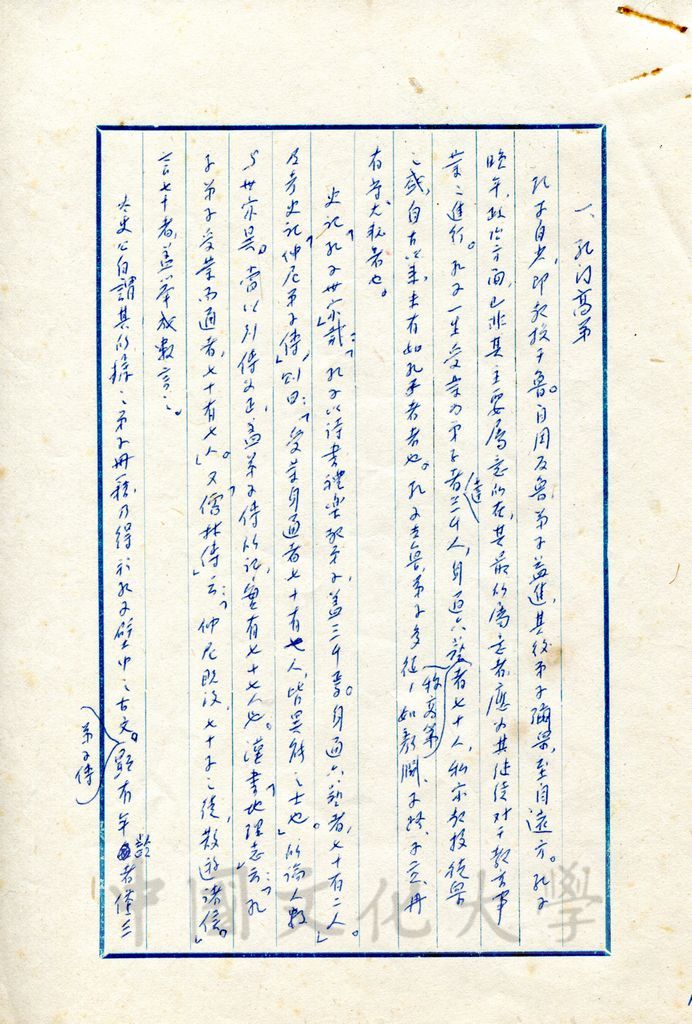 一、孔門高弟
孔子自少,即教授于魯。自周反魯,弟子益進,其後弟子彌眾,至自遠方。孔子
晚年,政治方面,已非其主要屬意所在,其最所屬意者,應為其徒對于教育事
業之進行。孔子一生受業為弟子者達三千人,身通六藝者七十人,私家教授徒眾
之盛,自古以來,未有如孔子者也。孔子去魯,弟子多從,如較高弟顏淵、子路、子貢、冉
有等大教者也。
史記「孔子世家」載:「孔子以詩書禮樂教弟子,蓋三千焉。身通六藝者,七十有二人。」
及考史記「仲尼弟子傳」,則曰:「受業身通者七十有七人,皆異能之士也。」所論人數
與世家異。當以列傳為正,蓋弟子傳所記,實有七十七人也。漢書「地理志」云:「孔
子弟子受業而通者,七十有七人」。又「儒林傳」云:「仲尼既沒,七十子之徒,散遊諸侯。」
言七十者,蓋舉成數言之。
太史公自謂其所據之弟子冊籍,乃得於孔子壁中之古文。(弟子傳)顯有年齡者僅三
中國文化大學